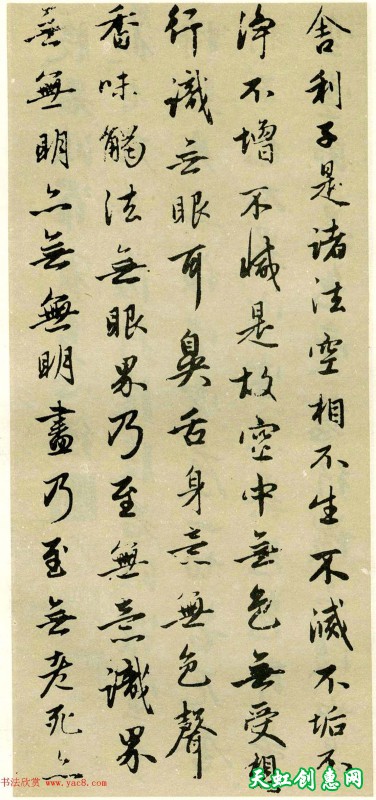 舍利子是諸法空相不生不滅不垢不
淨不增不減是故空中無色無受想
行識无眼耳鼻舌身意無色聲
香味觸法無眼界乃至無意識界
無無明亦無無明盡乃至無老死亦
书法欣赏 www.yac8.com
天虹创惠网